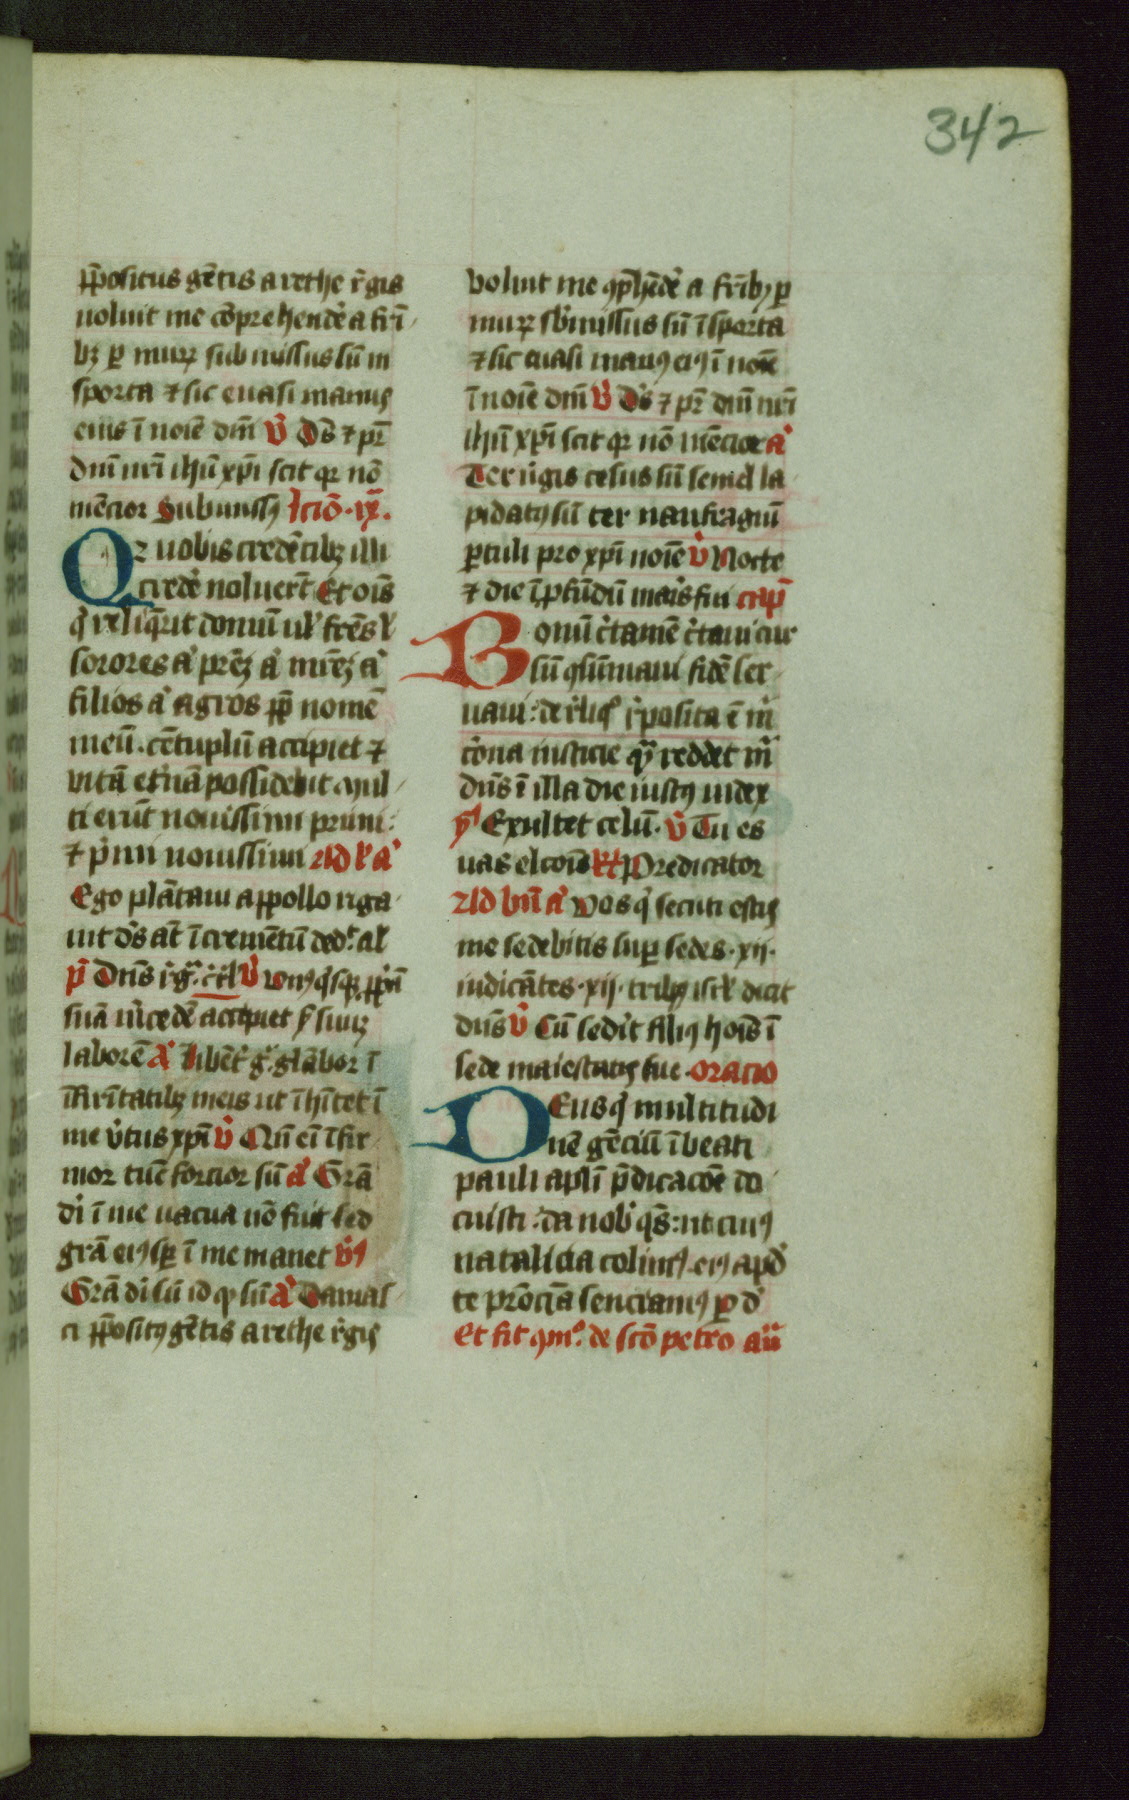 342
p̄positus gētis arethe r̄gis
uoluit me cōprehendē a frī
bꝫ ꝑ muꝝ submissus sū in
sporta ⁊ sic euasi manus
eius ī noīe dm̄ v̄ Ds̄ ⁊ pr̄
dnī nr̄i ihū xp̄i scit qꝛ nō
mēcior Submissꝰ lctō · ix ·
Qꝛ uobis credētibꝫ illi
credē noluer̄t Et oīs
q̇ reliq̄rit domū ul̓ frēs l̓
sorores a̓ prēꝫ a̓ mrēꝫ a̓
filios a̓ agros pp̄ nomē
meū . cētuplū accipiet ⁊
vitā et̓nā possidebit mul
ti erūt nouissimi primi :
⁊ p̓mi nouissimi Ad l̓ a̓
Ego plātaui appollo riga
uit ds̄ aūt īcremētū ded̓t al̓
p̄ Dns̄ r̓g̓ . c̄tl̓ v̄ vnꝰq̇sqꝫ pp̓ā
suā m̓cedē accipiet ẜ suuꝫ
laborē a̓ Libēt̓ g̓ gl̓abor ī
īfirm̓tatibꝫ meis ut īh̓itet ī
me v̓tus xp̄i v̄ Cū eī īfir
mor tūc forcior sū a̓ Grā
dī ī me uacua nō fuit sed
grā eiꝰ sꝑ ī me manet v̓s
Grā dī sū id qḋ sū a̓ Damas
ci p̄positꝰ gētis arethe r̄gis
voluit me ꝯp̄hēdē a frībꝫ ꝑ
muꝝ sb̓missus sū ī sporta
⁊ sic euasi manꝰ eiꝰ ī noīe
ī noīe dm̄ v̄ Ds̄ ⁊ pr̄ dnī nr̄i
ihū xp̄i scit qꝛ nō mēcior a̓
Ter v̓gis cesus sū semel la
pidatꝰ sū ter naufragiū
ꝑtuli pro xp̄i noīe v̄ Nocte
⁊ die ī ꝓfūdū mar̓s fui cap̄
Bonū c̓tamē c̓taui cur
sū ꝯsūmaui fidē ser
uaui : de r̓liqͦ r̓posita ē m̓
corōa iusticie qͣ reddet m̓
dns̄ ī illa die iustꝰ iudex
p̓ Exultet celū . v̄ Tu es
uas elcōis R̄ Predicator
Ad bn̄ a̓ Vos q̇ secuti estis
me sedebitis suꝑ sedes · xij ·
iudicātes · xij · tribꝰ isrl̓ dicit
dns̄ v̄ Cū sedit filiꝰ hoīs ī
sede maiestatis sue . oracio
Deus q̇ multitudi
nē gēciū ībeati
pauli apl̓i p̄dicacōe do
cuisti : da nob̓ qs̄ : ut cuiꝰ
natalicia colimꝰ . eiꝰ apd̓
te prōcīa senciamꝰ ꝑ d̓
Et fit ꝯmͦ . de scō petro añ